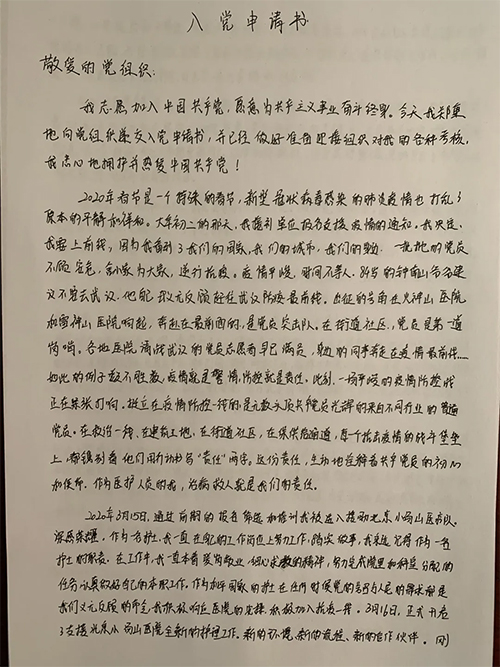 入党申请书
敬爱的党组织：
我志愿加入中国共产党，愿意为共产主义事业奋斗终身。今天我郑重
地向党组织递交入党申请书，并已经做好准备迎接组织对我的各种考核，
我忠心地拥护并热爱中国共产党！
2020年春节是一个特殊的春节，新型冠状病毒感染的肺炎疫情也打乱了
原本的平静和祥和。大年初二的那天，我看到单位报名支援疫情的通知。我决定，
我要上前线，因为我看到了我们的国家，我们的城市，我们的身边，一批批的党员
不顾安危，舍小家为大家，逆行抗疫。疫情早晚，时间不等人，84岁的钟南山
不要去武汉，他自己却义无反顾赶往武汉防疫最前线。出征的号角在火神山医院
和雷神山医院响起，奔赴在最前面的，是党员突击队。在街道社区，党员是第一道
岗哨。各地医院请战武汉的党员志愿者早已满员，身边的同事奔走在疫情最前线……
如此的例子数不胜数，疫情就是警情，防控就是责任。此刻，一场严峻的疫情防控战
正在紧张打响。挺立在疫情防控一线的，是无数头顶共产党员光辉的来自不同行业的普通
党员。在救治一线，在建筑工地，在街道社区，在保供应通道，每个抗击疫情的战斗堡垒
上，都镌刻着他们用行动书写"责任"两字。这份责任，生动地诠释着共产党员的初心
和使命。作为医护人员的我，治病救人就是我们的责任。
2020年3月15日，通过前期的报名筛选和培训我被选入援助北京小汤山医疗队，
深感荣耀。作为一名护士，我一直在自己的工作岗位上努力工作，踏实做事，我永远记得作为一名
护士的职责。在工作中，我一直本着爱岗敬业，细心求教的精神，努力完成院里和科室分配的
任务认真做好自己的本职工作。作为和平国家的护士在任何时候党的召唤人民的需求都是
我们义无反顾的牵念我积极响应医院的安排积极加入抗疫一线。3月16日，正式开启
了支援北京小汤山医院全新的护理工作。新的环境、新的流程、新的合作伙伴。刚